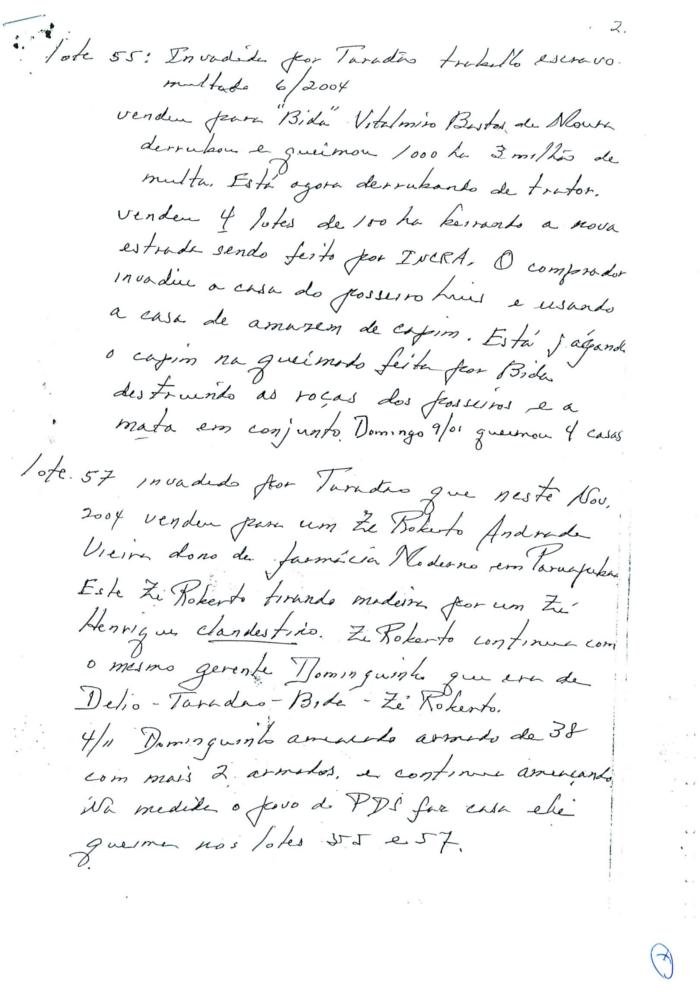 2.
lote 55: Invadida por Taradão trabalho escravo.
multado 6/2004
vendeu para "Bida" Vitalmiro Bastos de Moura
derrubou e queimou 1000 ha 3 milhão de
multa. Está agora derrubando de trator.
vendeu 4 lotes de 100 ha beirando a nova
estrada sendo feito por INCRA. O comprador
invadiu a casa do posseiro Luis e usando
a casa de amazem de capim. Está jágando
o capim na queimada feita por Bida
destruindo as roças dos posseiros e a
mata em conjunto. Domingo 9/01 queimou 4 casas
lote. 57 invadido por Taradão que neste Nov.
2004 vendeu para um Zé Roberto Andrade
Vieira dono da farmácia Moderno em
Este Zé Roberto tirando madeira por um Zé
Henrique clandestino. Zé Roberto continua com
o mesmo gerente Dominguinho que era de
Delio - Taradão - Bida - Zé Roberto.
4/11 Dominguinho armado de 38
com mais 2 armados. e continua ameaçando
Na medida o povo do PDS faz casa ele
queima nos lotes 55 e 57.